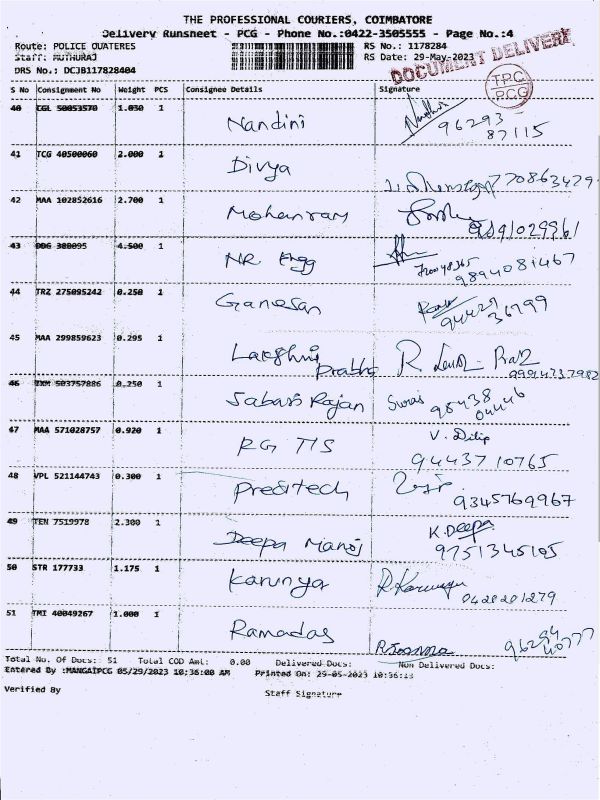 THE PROFESSIONAL COURIERS, COIMBATORE
Delivery Runsheet - PCG - Phone No.:0422-3505555 - Page No.:4
Route: POLICE QUATERES RS No.: 1178284
Staff: MUTHURAJ RS Date: 29-May-2023
DRS No.: DCJB117828404
DOCUMENT DELIVERY
TPC
PCG
S No Consignment No Weight PCS Consignee Details Signature
40 CGL 50053570 1.030 1 Nandini 96293
87115
41 TCG 40500060 2.000 1 Divya 770863429
42 MAA 102852616 2.700 1 Mohanram 9591029961
43 DDG 380095 4.500 1 NR Engg
9894081467
44 TRZ 275095242 0.250 1 Ganesan 94429
36799
45 MAA 299859623 0.295 1 Lakshmi Prabha R.
9994737982
46 503757886 0.250 1 Sabari Rajan 98438
04446
47 MAA 571028757 0.920 1 RG TIS V. Dilip
9443710765
48 VPL 521144743 0.300 1 Preditech
9345769967
49 TEN 7519978 2.300 1 Deepa Manoj K.Deepa
9751345105
50 STR 177733 1.175 1 Karunya
0428201279
51 TMI 40049267 1.000 1 Ramadas
Total No. Of Docs: 51 Total COD Amt: 0.00 Delivered Docs: Non Delivered Docs:
Entered By :MANGAIPCG 05/29/2023 10:36:00 AM Printed On: 29-05-2023 10:36:13
Verified By Staff Signature